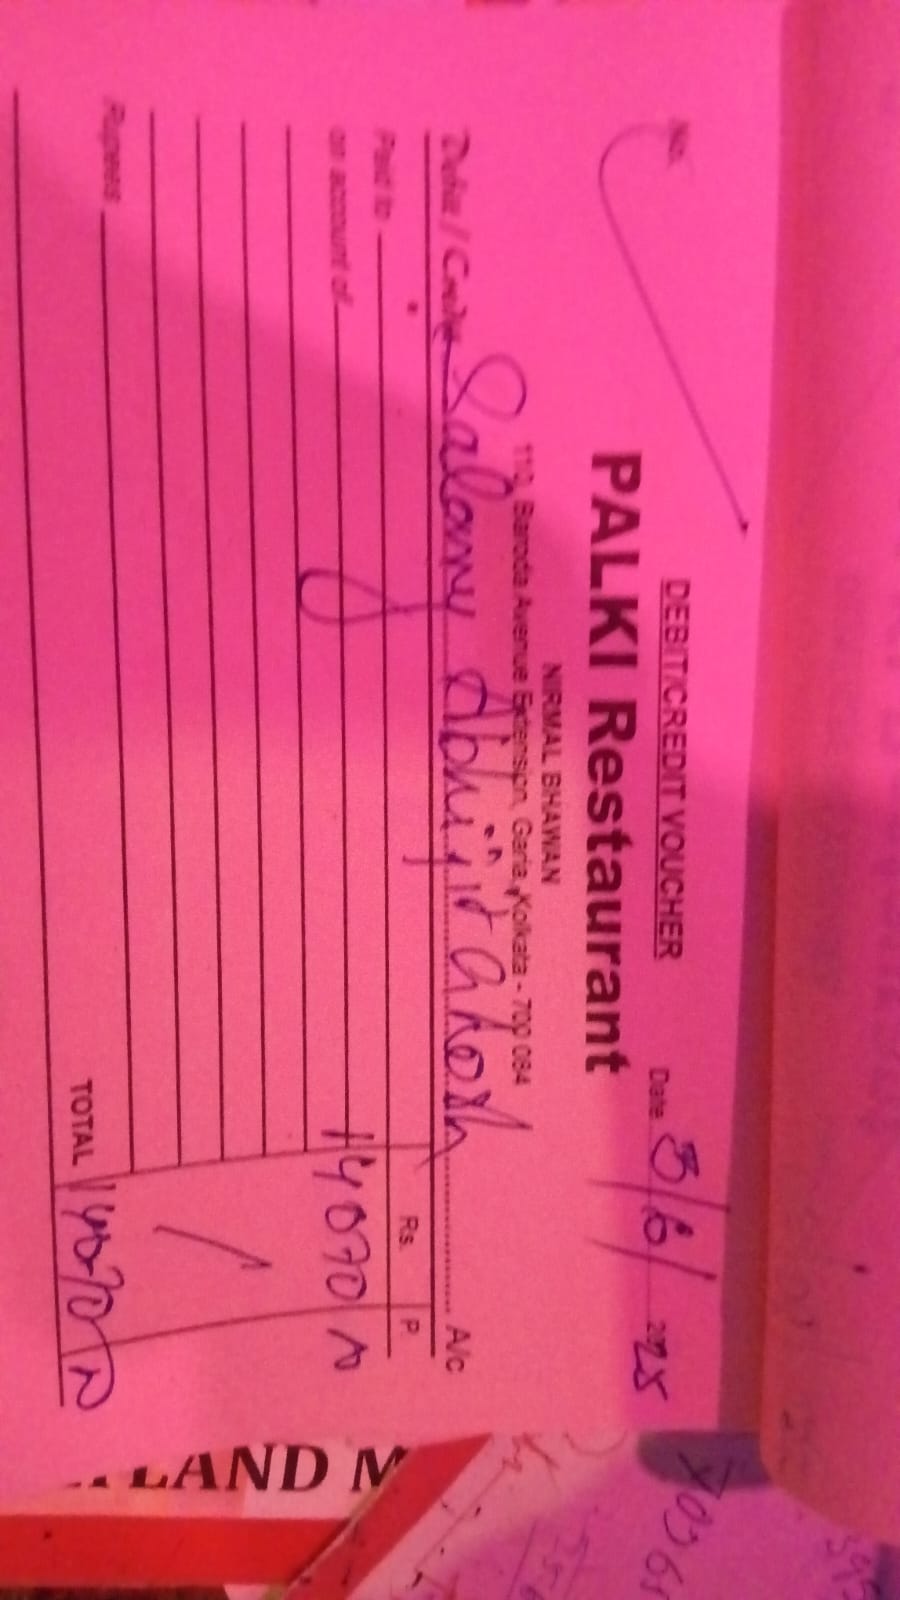 No.
DEBIT/CREDIT VOUCHER
Date 3/6/2025
PALKI Restaurant
NIRMAL BHAWAN
110, Baroda Avenue Extension, Garia, Kolkata - 700 084
Debit / Credit Salary Abhijit Ghosh A/c
Paid to Rs. P.
on account of 14070
Rupees
TOTAL 14070
LAND M